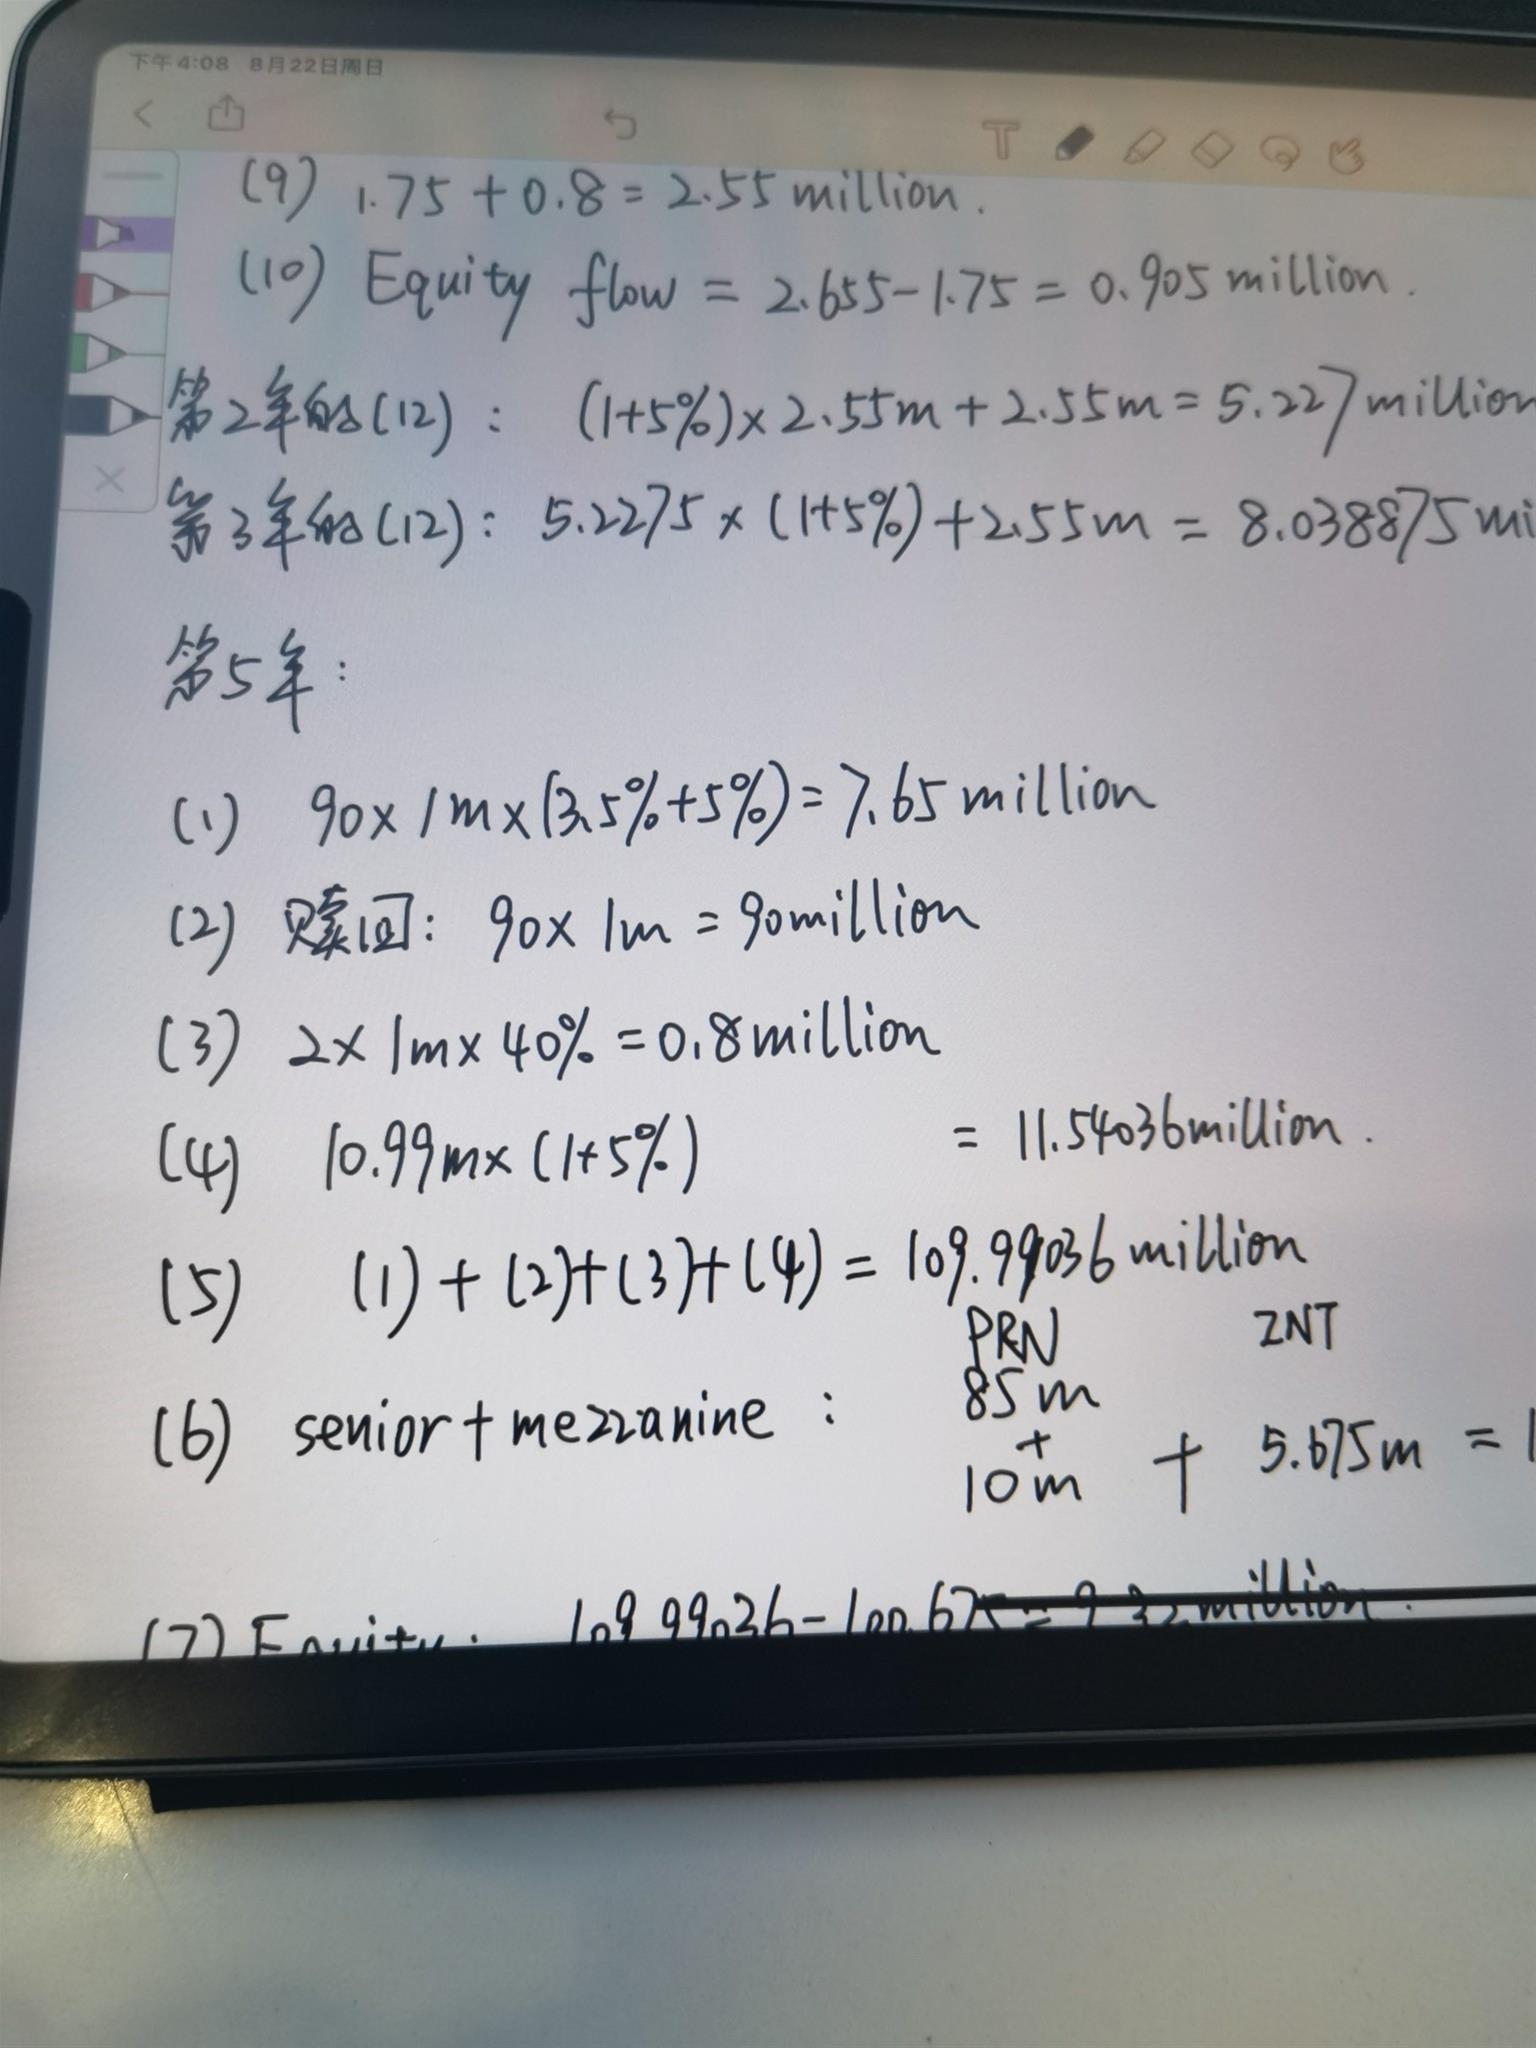 下午4:08 8月22日周日
T
(9) 1.75+0.8=2.55 million.
(10) Equity flow = 2.655-1.75 = 0.905 million.
第2年的(12): (1+5%)×2.55m+2.55m=5.227 million
第3年的(12): 5.2275×(1+5%)+2.55m = 8.038875 mi
第5年:
(1) 90×1m×(3.5%+5%)=7.65 million
(2) 赎回: 90×1m = 90million
(3) 2×1m×40% =0.8million
(4) 10.99m×(1+5%) = 11.54036million.
(5) (1)+(2)+(3)+(4) = 109.99036 million
PRN INT
(6) senior+mezzanine : 85m + 10m + 5.675m = 1
(7) Equity: 109.99036-100.675=9.32 million.